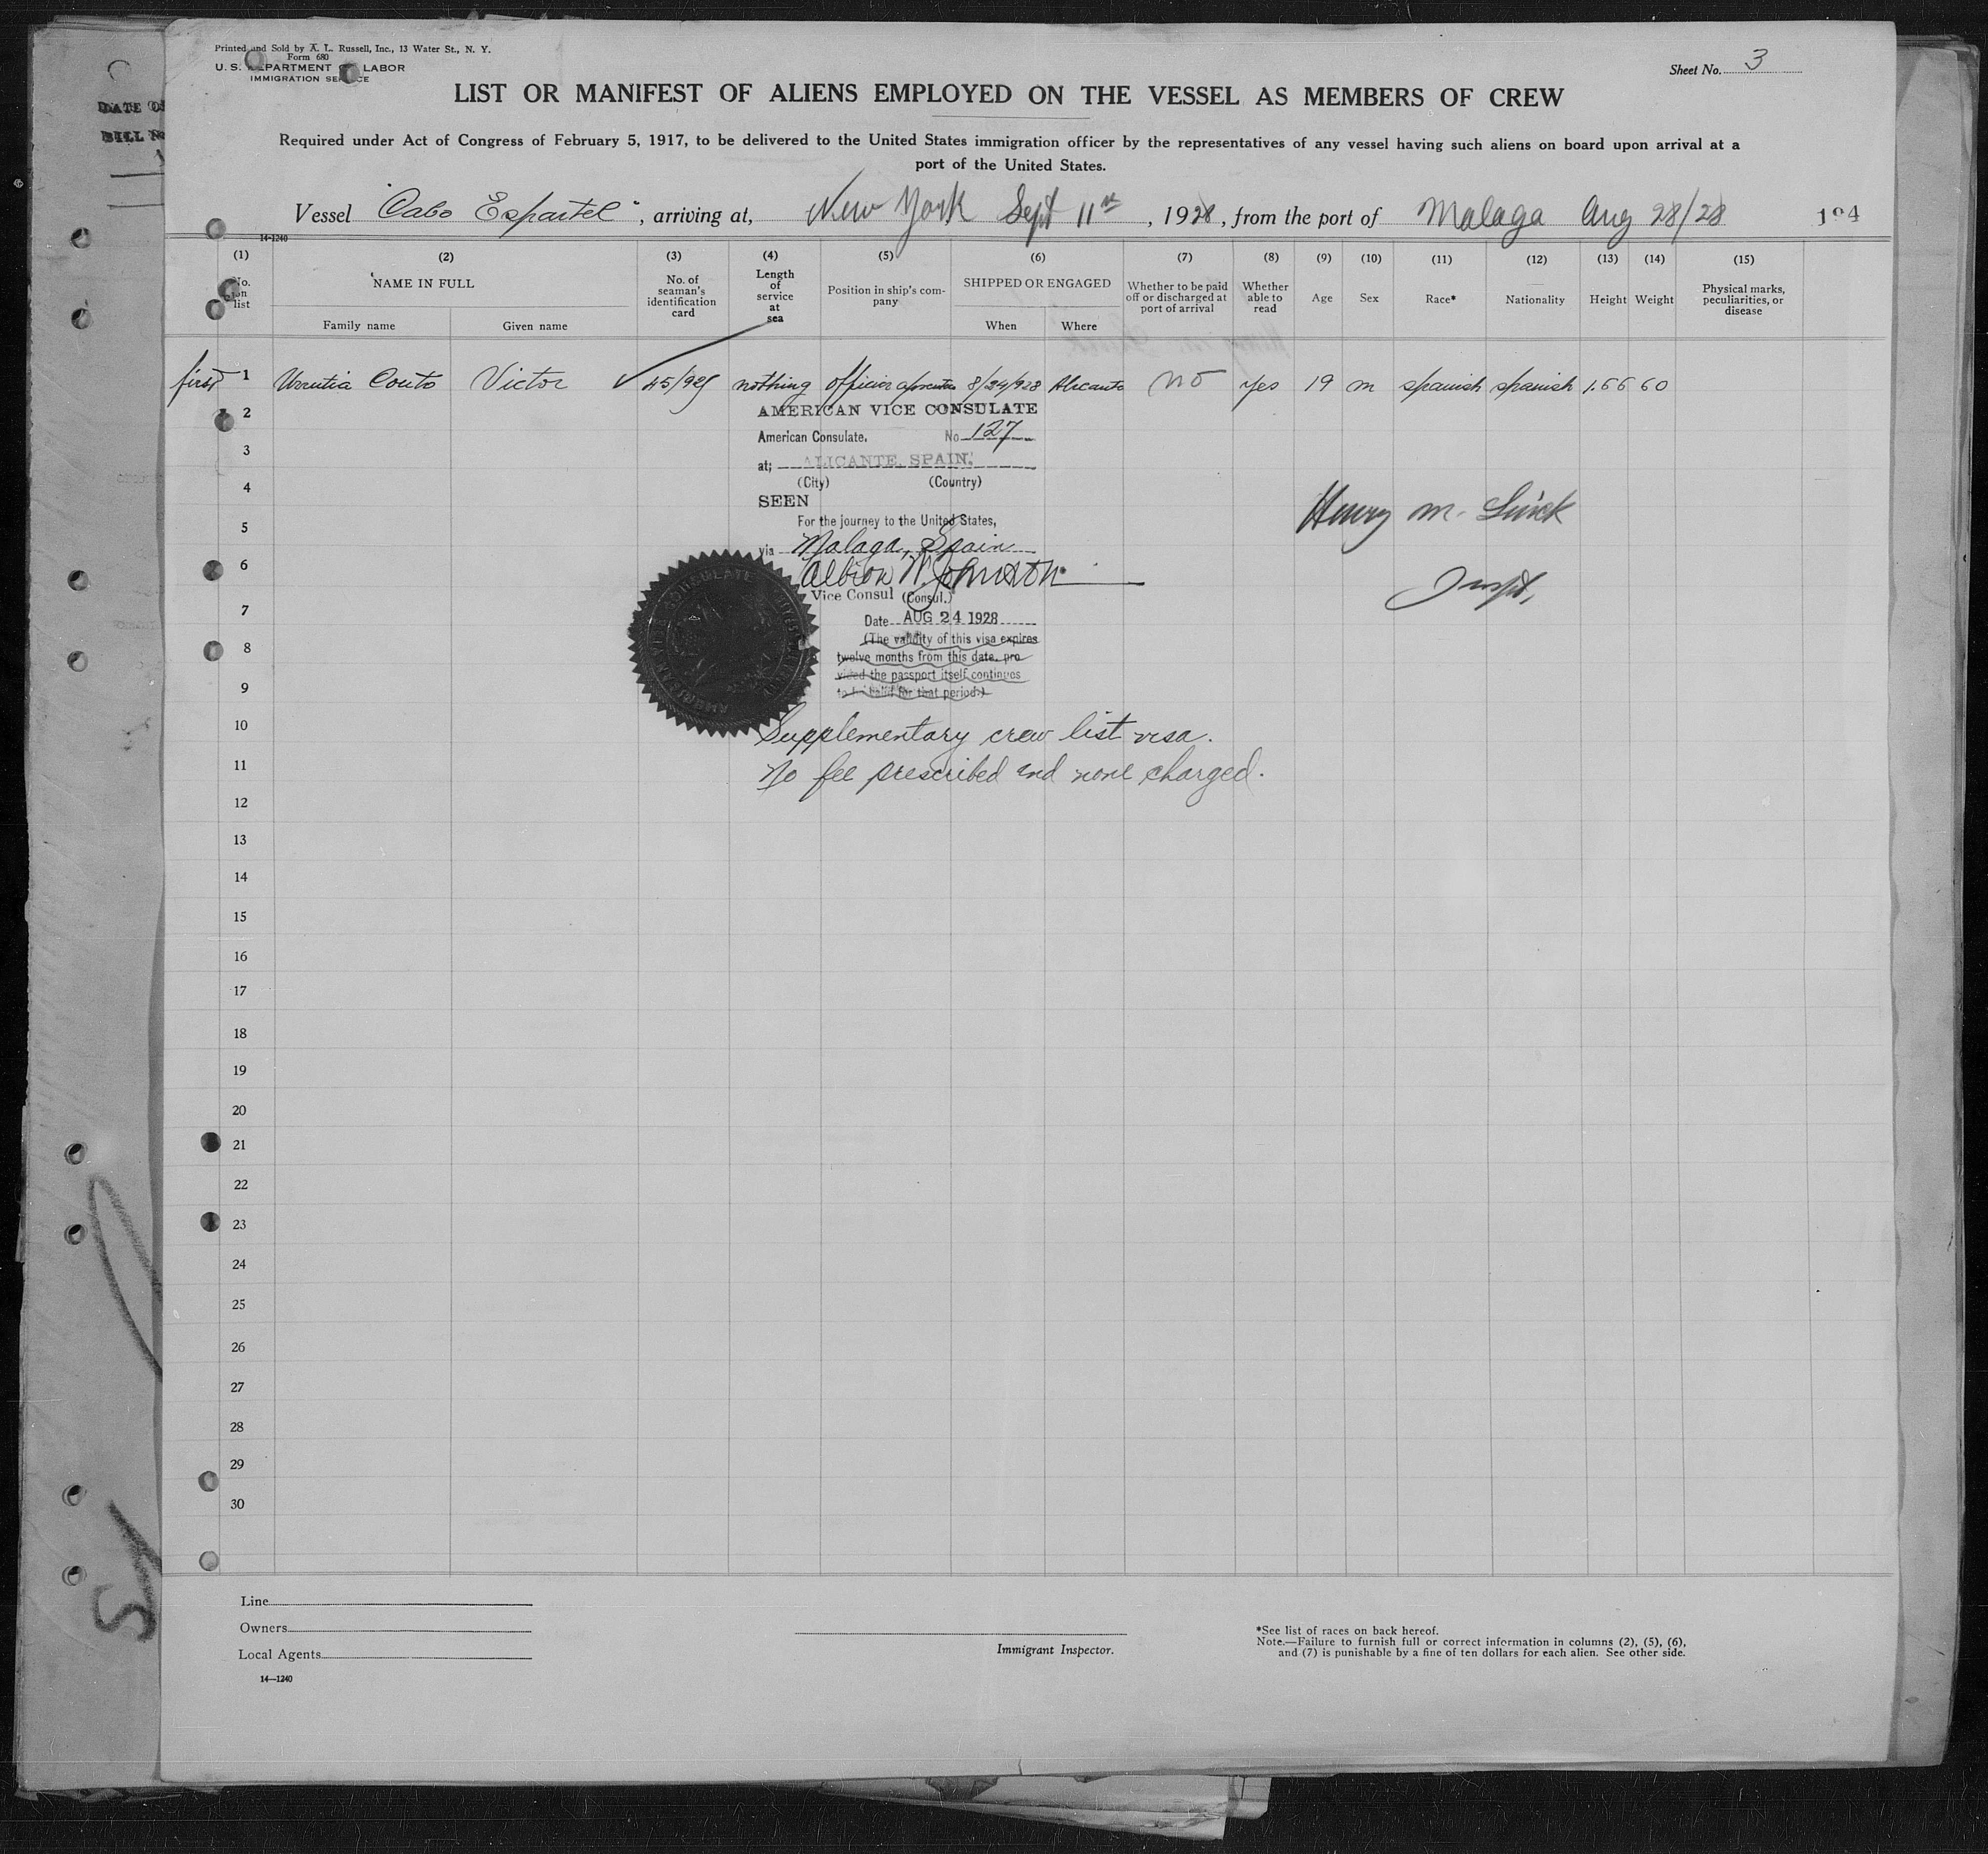 Printed and Sold by A. L. Russell, Inc., 13 Water St., N. Y.
Form 680
U. S. DEPARTMENT OF LABOR
IMMIGRATION SERVICE
Sheet No. 3
DATE OF
BILL No
LIST OR MANIFEST OF ALIENS EMPLOYED ON THE VESSEL AS MEMBERS OF CREW
Required under Act of Congress of February 5, 1917, to be delivered to the United States immigration officer by the representatives of any vessel having such aliens on board upon arrival at a
port of the United States.
Vessel "Cabo Espartel", arriving at, New York Sept 11th, 1928, from the port of Malaga Aug 28/28 194
14-1240
(1) (2) (3) (4) (5) (6) (7) (8) (9) (10) (11) (12) (13) (14) (15)
No. on list NAME IN FULL No. of seaman's identification card Length of service at sea Position in ship's company SHIPPED OR ENGAGED Whether to be paid off or discharged at port of arrival Whether able to read Age Sex Race* Nationality Height Weight Physical marks, peculiarities, or disease
Family name Given name When Where
first 1 Urrutia Couto Victor 45/925 nothing 8/24/928 Alicante no yes 19 m spanish spanish 1.66 60
2 AMERICAN VICE CONSULATE
American Consulate, No 127
3
at; ALICANTE, SPAIN.
(City) (Country)
4
SEEN
Henry M.
5
For the journey to the United States,
via Malaga, Spain
6
Albion W. Johnson
Inspt,
Vice Consul (Consul.)
7
Date AUG 24 1928
(The validity of this visa expires
8
twelve months from this date, pro
vided the passport itself continues
9
to be valid for that period.)
10
Supplementary crew list visa.
11
No fee prescribed and none charged.
12
13
14
15
16
17
18
19
20
21
22
23
24
25
26
27
28
29
30
Line
Owners
Local Agents
14—1240
Immigrant Inspector.
*See list of races on back hereof.
Note.—Failure to furnish full or correct information in columns (2), (5), (6),
and (7) is punishable by a fine of ten dollars for each alien. See other side.